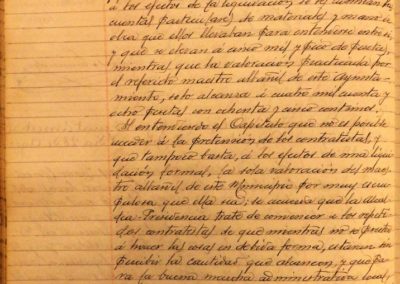 á los efectos de la liquidación se les admitan las
cuentas particulares de materiales y mano de
obra que ellos llevaban para entenderse entre sí,
y que se elevan á cinco mil y pico de pesetas,
mientras que la valoración practicada por
el referido maestro albañil de este Ayunta-
miento, solo alcanza á cuatro mil cuarenta y
ocho pesetas con ochenta y cinco centimos.
Y entendiendo el Capitulo que no es posible
acceder á la pretensión de los contratistas, y
que tampoco basta, á los efectos de una liqui-
dación formal, la sola valoración del maes-
tro albañil de este Municipio por muy escru-
pulosa que ella sea; se acuerda que la Alcal-
dia Presidencia trate de convencer á los repeti-
dos contratistas de que mientras no se presten
á hacer las cosas en debida forma, estarán sin
percibir la cantidad que alcancen, y que pa-
ra la buena marcha administrativa local